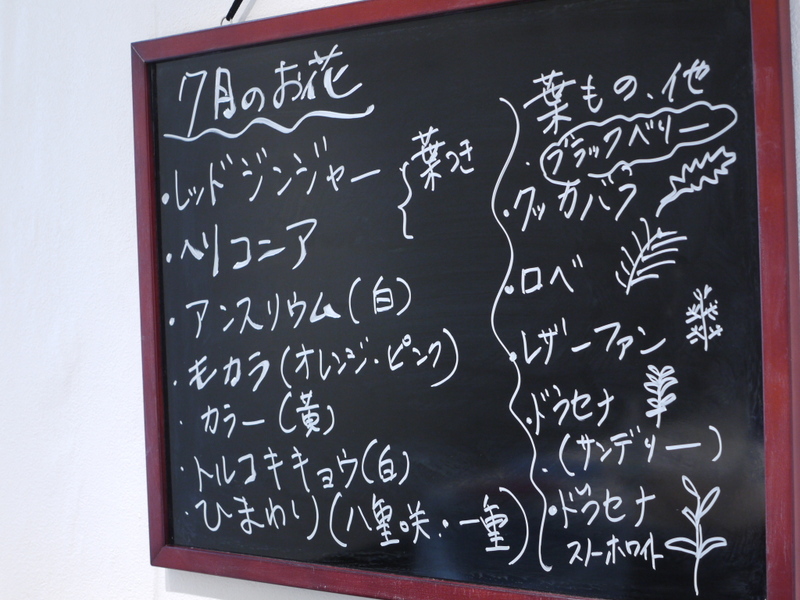 7月のお花
・レッドジンジャー
葉つき
・ヘリコニア
・アンスリウム(白)
・モカラ(オレンジ・ピンク)
・カラー(黄)
・トルコキキョウ(白)
・ひまわり(八重咲・一重)
葉もの、他
・ブラックベリー
・クッカバラ
・ロベ
・レザーファン
・ドラセナ
・(サンデリー)
・ドラセナ
スノーホワイト